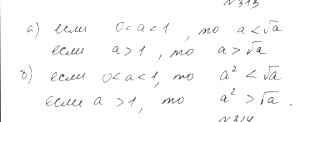 N313
а) если 0<a<1, то a<√a
если a>1, то a>√a
б) если 0<a<1, то a² <√a
если a >1, то a² >√a.
N314